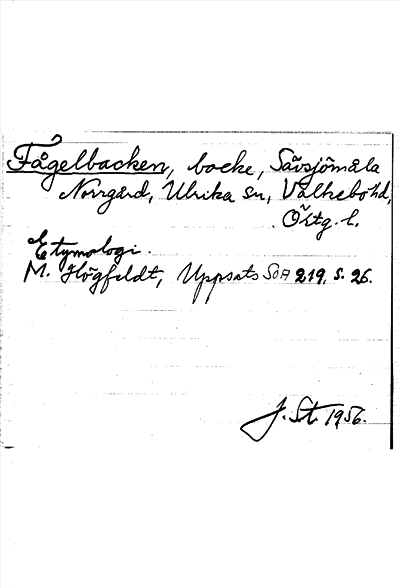 Fågelbacken, backe, Sävsjömåla
Norrgård, Ulrika sn, Valkebo hd,
Östg. l.
Etymologi.
M. Högfeldt, Uppsats SOA 219, s. 26.
J. St. 1956.